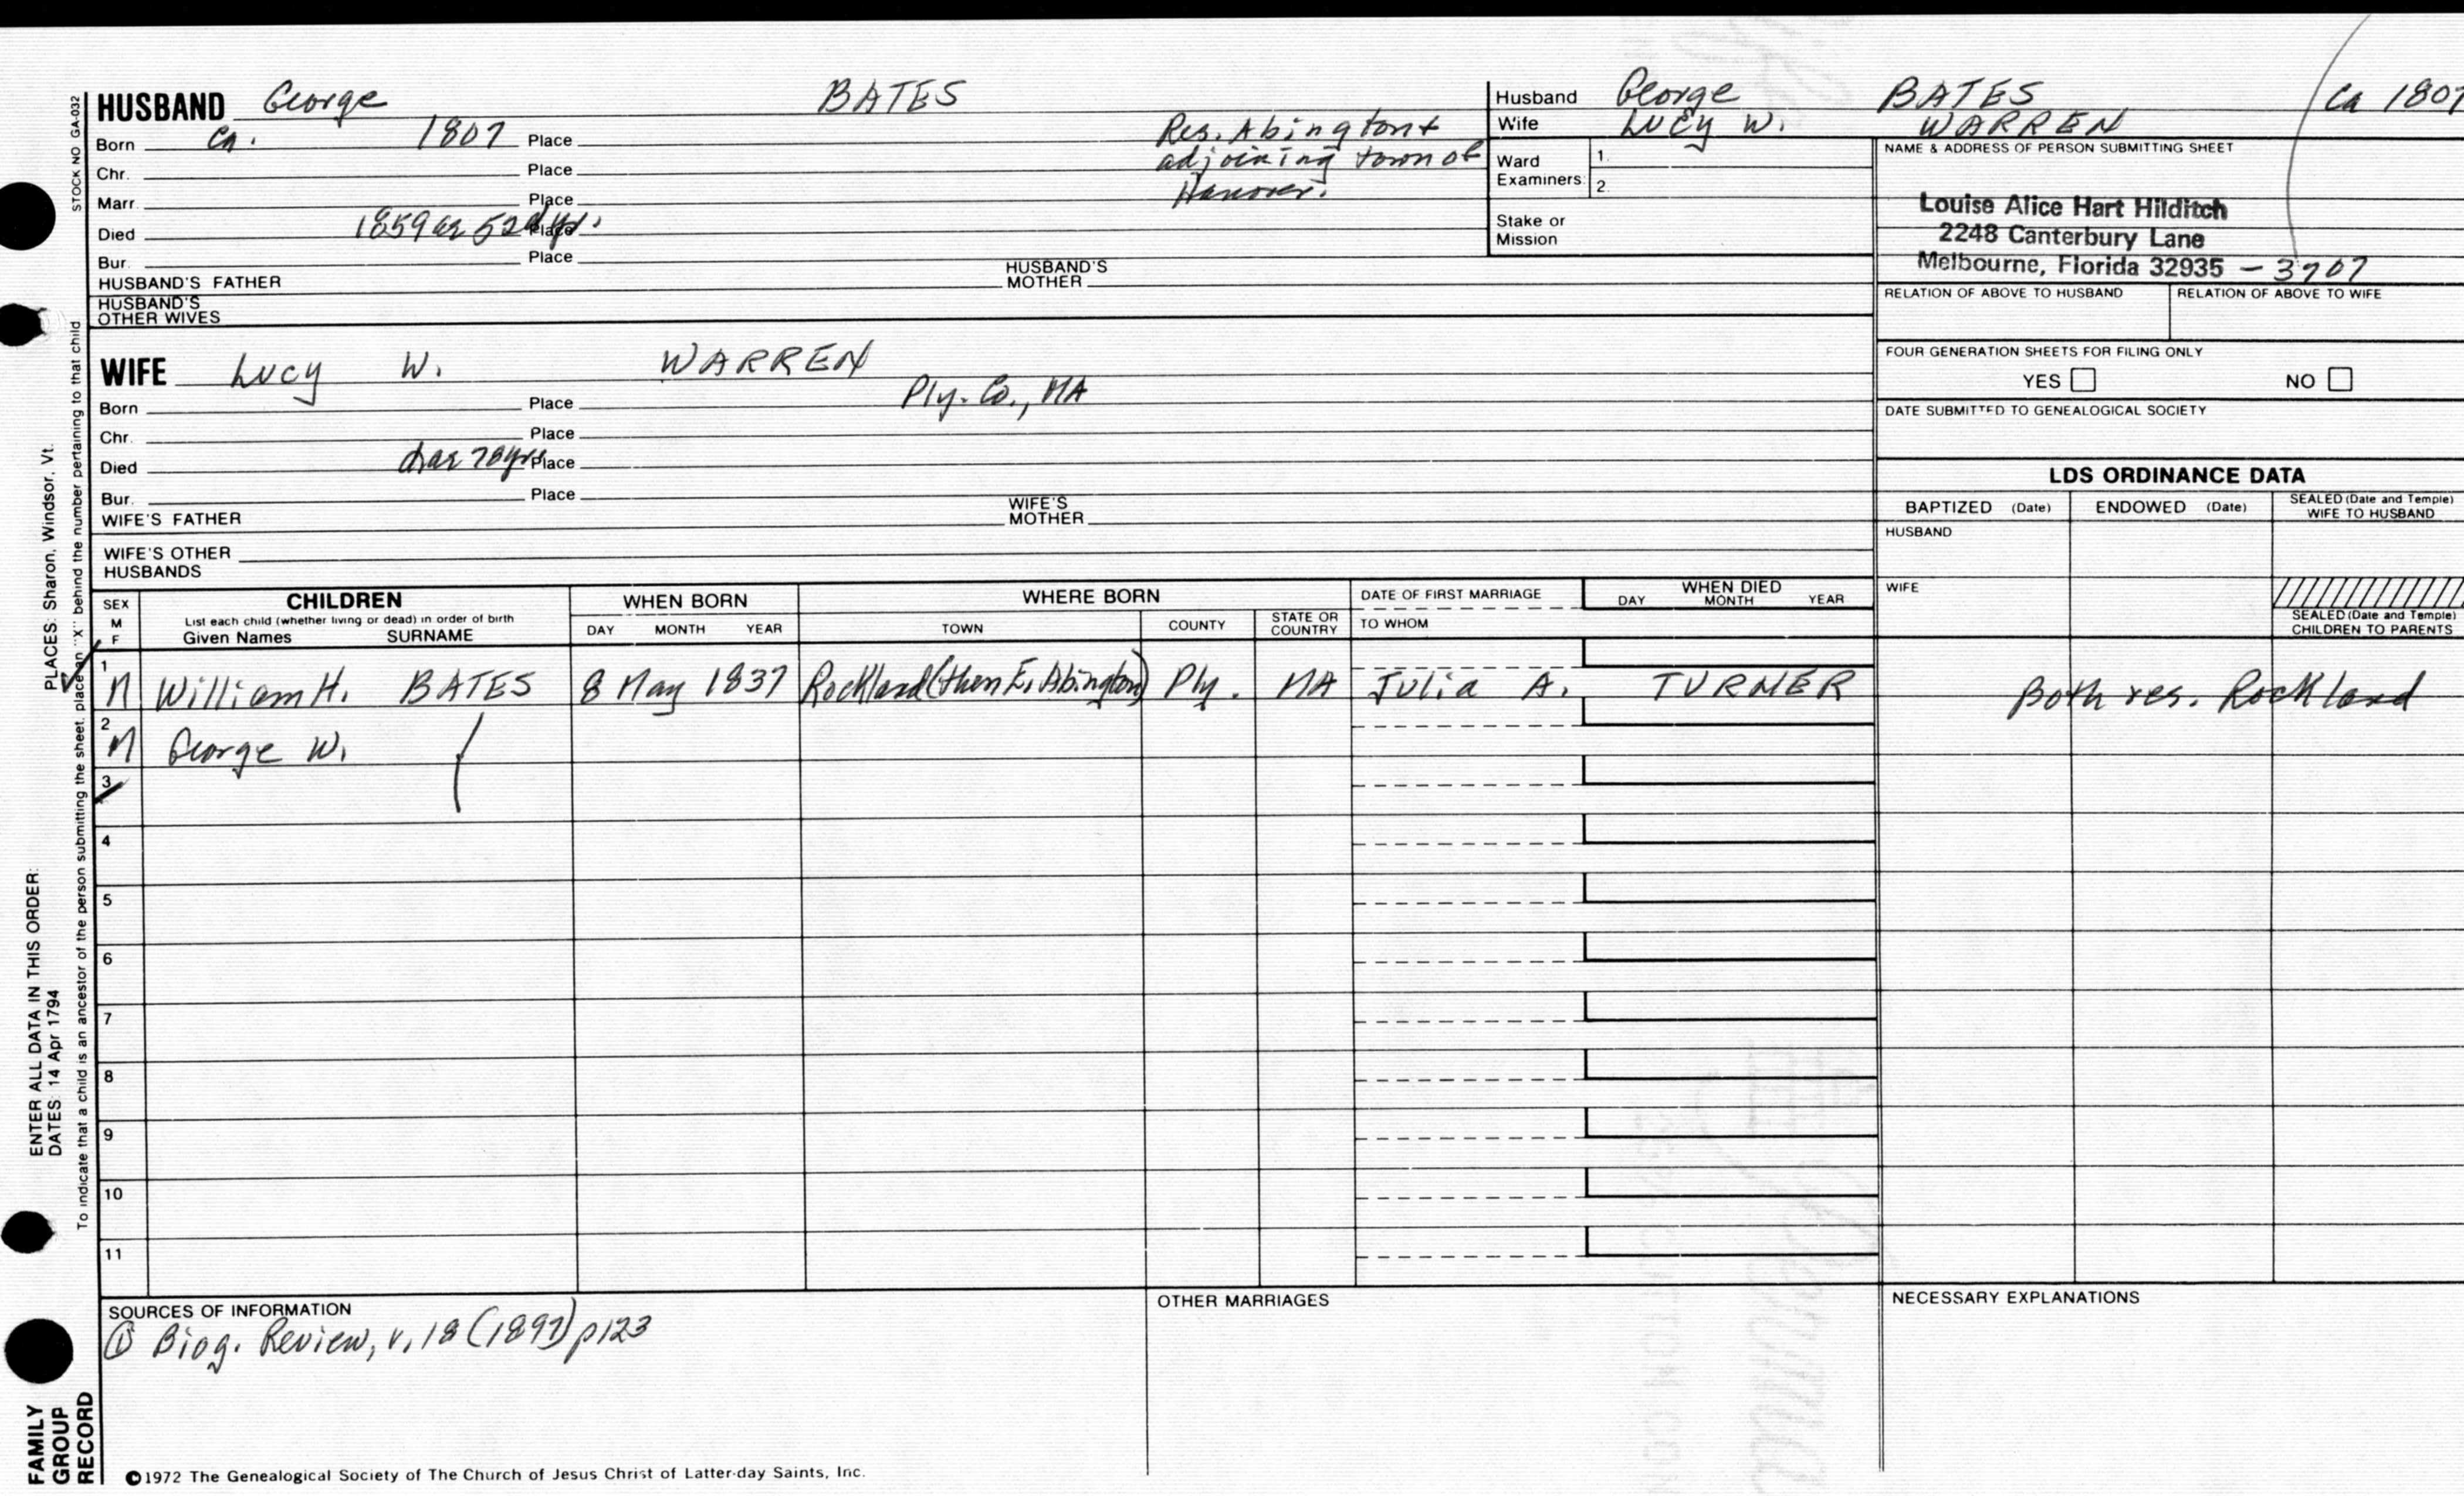 HUSBAND George BATES
Born Ca. 1807 Place Res. Abington +
Chr. Place adjoining town of
Marr. Place Hanover.
Died 1859 ae 52 yr. Place
Bur. Place
HUSBAND'S FATHER HUSBAND'S MOTHER
HUSBAND'S OTHER WIVES
WIFE Lucy W. WARREN
Born Place Ply. Co., MA
Chr. Place
Died 78 yrs Place
Bur. Place
WIFE'S FATHER WIFE'S MOTHER
WIFE'S OTHER HUSBANDS
Husband George BATES Ca 1807
Wife Lucy W. WARREN
Ward Examiners: 1.
2.
Stake or Mission
NAME & ADDRESS OF PERSON SUBMITTING SHEET
Louise Alice Hart Hilditch
2248 Canterbury Lane
Melbourne, Florida 32935 - 3707
RELATION OF ABOVE TO HUSBAND RELATION OF ABOVE TO WIFE
FOUR GENERATION SHEETS FOR FILING ONLY
YES NO
DATE SUBMITTED TO GENEALOGICAL SOCIETY
LDS ORDINANCE DATA
BAPTIZED (Date) ENDOWED (Date) SEALED (Date and Temple) WIFE TO HUSBAND
HUSBAND
WIFE
SEALED (Date and Temple) CHILDREN TO PARENTS
SEX M F CHILDREN WHEN BORN WHERE BORN DATE OF FIRST MARRIAGE WHEN DIED
List each child (whether living or dead) in order of birth
Given Names SURNAME DAY MONTH YEAR TOWN COUNTY STATE OR COUNTRY TO WHOM DAY MONTH YEAR
1 M William H. BATES 8 May 1837 Rockland (then E. Abington) Ply. MA Julia A. TURNER Both res. Rockland
2 M George W.
3
4
5
6
7
8
9
10
11
SOURCES OF INFORMATION
① Biog. Review, v. 18 (1897) p123
OTHER MARRIAGES
NECESSARY EXPLANATIONS
©1972 The Genealogical Society of The Church of Jesus Christ of Latter-day Saints, Inc.
STOCK NO GA-032
PLACES: Sharon, Windsor, Vt.
To indicate that a child is an ancestor of the person submitting the sheet, place an "X" behind the number pertaining to that child
ENTER ALL DATA IN THIS ORDER:
DATES: 14 Apr 1794
FAMILY
GROUP
RECORD